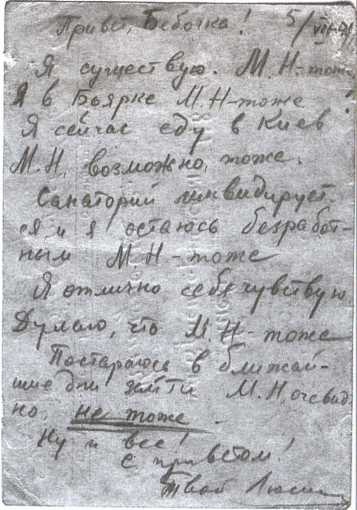 Привет, Бебочка! 5/VII-41
Я существую. М.Н-тоже
Я в Боярке М.Н-тоже!
Я сейчас еду в Киев
М.Н. возможно, тоже.
Санаторий ликвидирует-
ся и я остаюсь безработ-
ным М.Н-тоже
Я отлично себя чувствую.
Думаю, что М.Н-тоже
Постараюсь в ближай-
шие дни зайти М.Н, очевид-
но, не тоже.
Ну и все!
С приветом!
Твой Люсик